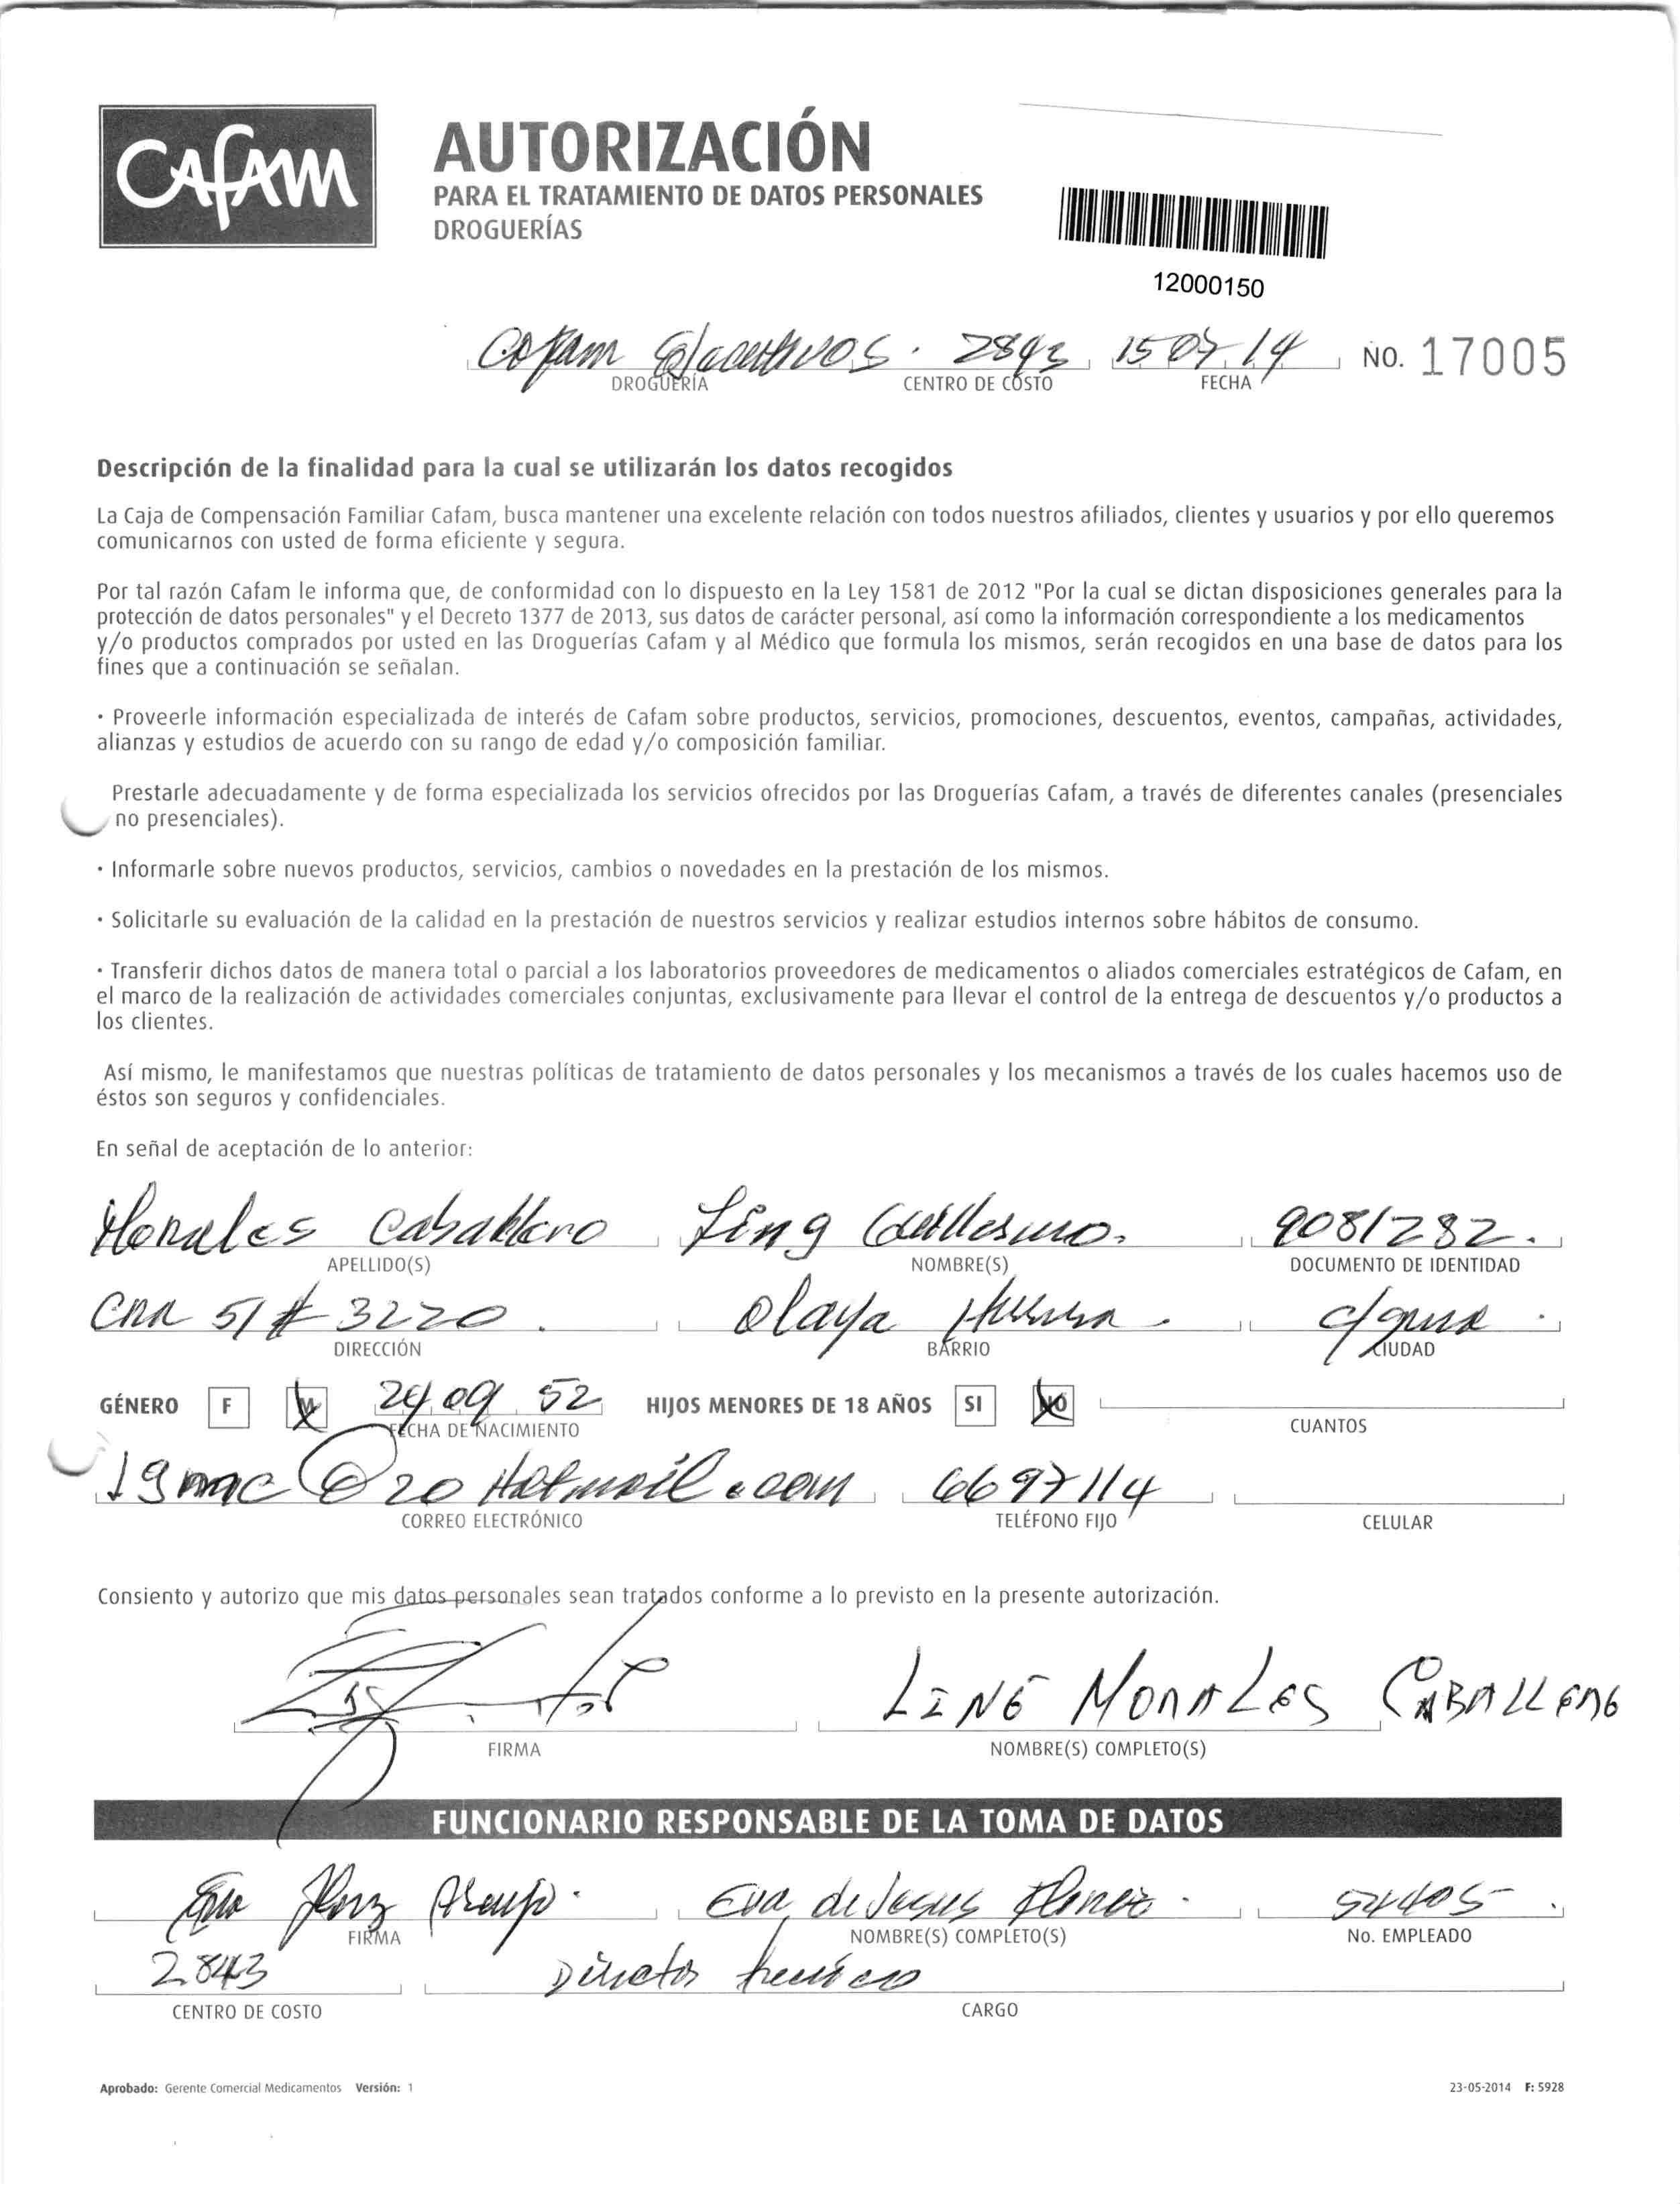 CAFAM
AUTORIZACIÓN
PARA EL TRATAMIENTO DE DATOS PERSONALES
DROGUERÍAS
12000150
Cafam 2843 15 07 14 NO. 17005
DROGUERÍA CENTRO DE COSTO FECHA
Descripción de la finalidad para la cual se utilizarán los datos recogidos
La Caja de Compensación Familiar Cafam, busca mantener una excelente relación con todos nuestros afiliados, clientes y usuarios y por ello queremos
comunicarnos con usted de forma eficiente y segura.
Por tal razón Cafam le informa que, de conformidad con lo dispuesto en la Ley 1581 de 2012 "Por la cual se dictan disposiciones generales para la
protección de datos personales" y el Decreto 1377 de 2013, sus datos de carácter personal, así como la información correspondiente a los medicamentos
y/o productos comprados por usted en las Droguerías Cafam y al Médico que formula los mismos, serán recogidos en una base de datos para los
fines que a continuación se señalan.
· Proveerle información especializada de interés de Cafam sobre productos, servicios, promociones, descuentos, eventos, campañas, actividades,
alianzas y estudios de acuerdo con su rango de edad y/o composición familiar.
Prestarle adecuadamente y de forma especializada los servicios ofrecidos por las Droguerías Cafam, a través de diferentes canales (presenciales
no presenciales).
· Informarle sobre nuevos productos, servicios, cambios o novedades en la prestación de los mismos.
· Solicitarle su evaluación de la calidad en la prestación de nuestros servicios y realizar estudios internos sobre hábitos de consumo.
· Transferir dichos datos de manera total o parcial a los laboratorios proveedores de medicamentos o aliados comerciales estratégicos de Cafam, en
el marco de la realización de actividades comerciales conjuntas, exclusivamente para llevar el control de la entrega de descuentos y/o productos a
los clientes.
Así mismo, le manifestamos que nuestras políticas de tratamiento de datos personales y los mecanismos a través de los cuales hacemos uso de
éstos son seguros y confidenciales.
En señal de aceptación de lo anterior:
Morales Caballero Ling Guillermo. 9081282.
APELLIDO(S) NOMBRE(S) DOCUMENTO DE IDENTIDAD
Cra 51 # 3220. Olaya Herrera. c/gena.
DIRECCIÓN BARRIO CIUDAD
GÉNERO F M 24 09 52 HIJOS MENORES DE 18 AÑOS SI NO
FECHA DE NACIMIENTO CUANTOS
@20 Hotmail.com 6697114
CORREO ELECTRÓNICO TELÉFONO FIJO CELULAR
Consiento y autorizo que mis datos personales sean tratados conforme a lo previsto en la presente autorización.
MORALES CABALLERO
FIRMA NOMBRE(S) COMPLETO(S)
FUNCIONARIO RESPONSABLE DE LA TOMA DE DATOS
Eva de Jesus 54405.
FIRMA NOMBRE(S) COMPLETO(S) No. EMPLEADO
2843 Director tecnico
CENTRO DE COSTO CARGO
Aprobado: Gerente Comercial Medicamentos Versión: 1 23-05-2014 F: 5928